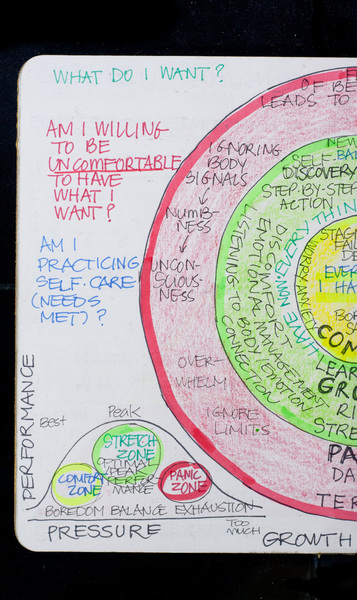 WHAT DO I WANT?
AM I WILLING
TO BE
UNCOMFORTABLE
TO HAVE
WHAT I
WANT?
AM I
PRACTICING
SELF-CARE
(NEEDS
MET)?
OF BE
LEADS TO
IGNORING
BODY
SIGNALS
NUMB-
NESS
UNCON-
SCIOUS-
NESS
OVER-
WHELM
IGNORE
LIMITS
NEW
SELF-
DISCOVERY
STEP-BY-STEP
ACTION
LISTENING TO BODY EMOTION
CONNECTION
EMOTIONAL MANAGEMENT
DISCOMFORT
I HAVE EVERYTHIN
STAG
FAIL
DE
EVE
I HA
BOR
COM
LEAR
GRO
RI
STRE
PA
DA
TER
PERFORMANCE
Best
Peak
STRETCH
ZONE
OPTIMAL
PEAK
PERFOR-
MANCE
COMFORT
ZONE
PANIC
ZONE
BOREDOM BALANCE EXHAUSTION
PRESSURE
TOO
MUCH
GROWTH